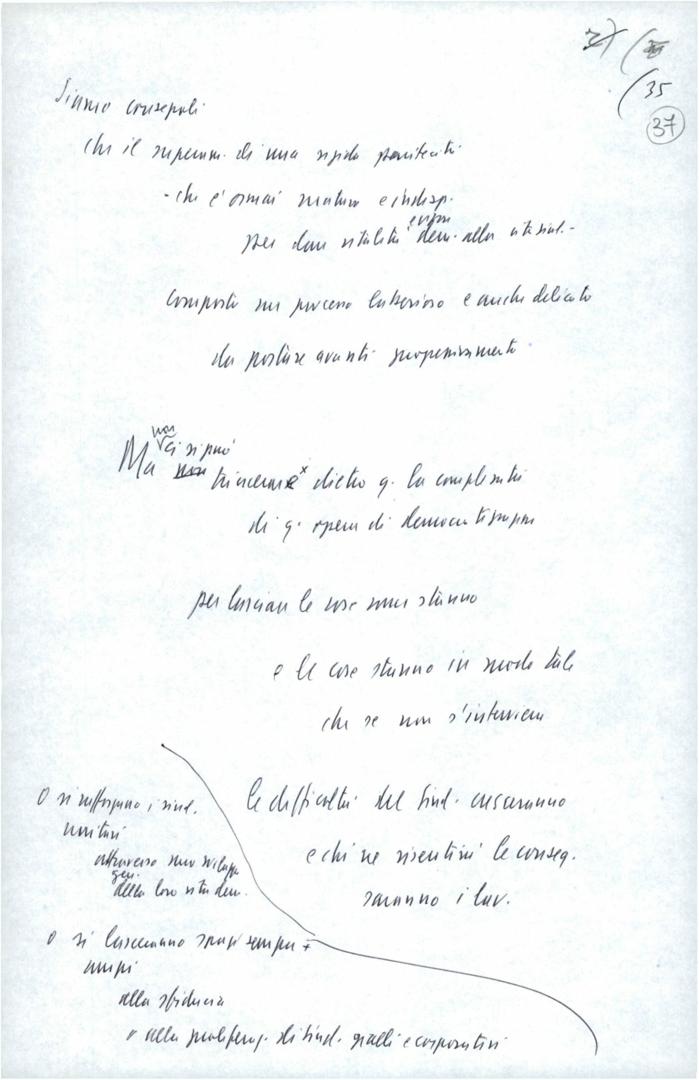 37
35
37
Siamo consapevoli
che il superam. di una rigida pariteticità
- che è ormai matura e indisp.
e espans
per dare vitalità dem. alla vita sind. -
comporta un processo laborioso e anche delicato
da portare avanti
non
ci si può
Ma non trincerare dietro q. la complessità
di q. opera di democratizzazione
per lasciare le cose come stanno
e le cose stanno in modo tale
che se non s'interviene
le difficoltà del Sind. cresceranno
e chi ne risentirà le conseg.
saranno i lav.
O si rafforzano i sind.
unitari
attraverso uno sviluppo
gen.
della loro vita dem.
o si lasceranno spazi sempre +
ampi
alla sfiducia
o alla proliferaz. di sind. gialli e corporativi